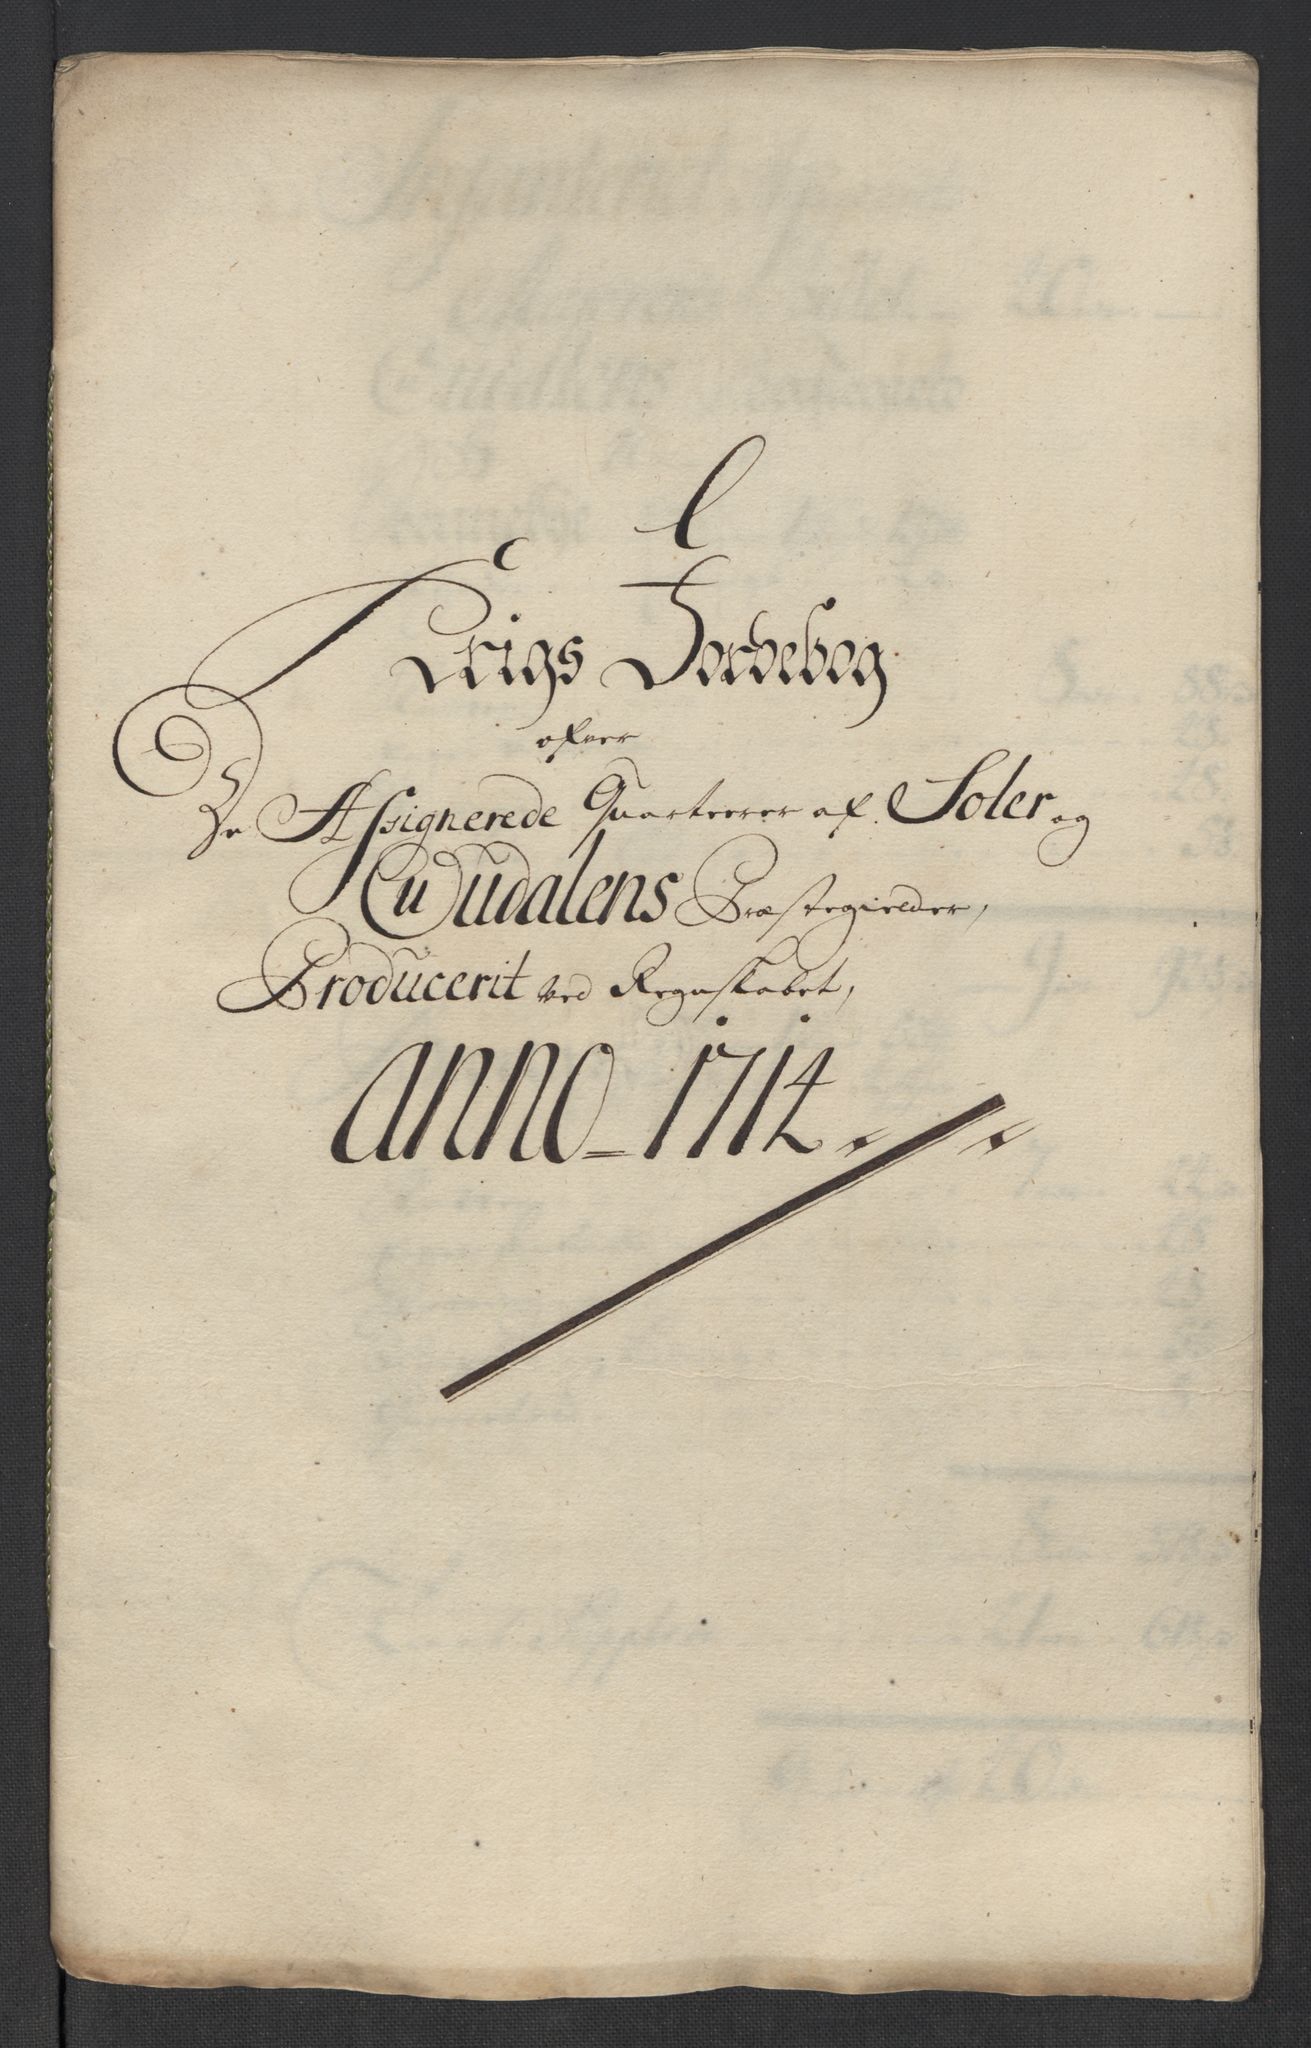 Krigs Jordebog
ofver
De Assignerede Quarteerer af Soler og
Oudalens Præstegielder,
Producerit ved Regnskabet,
Anno 1714.